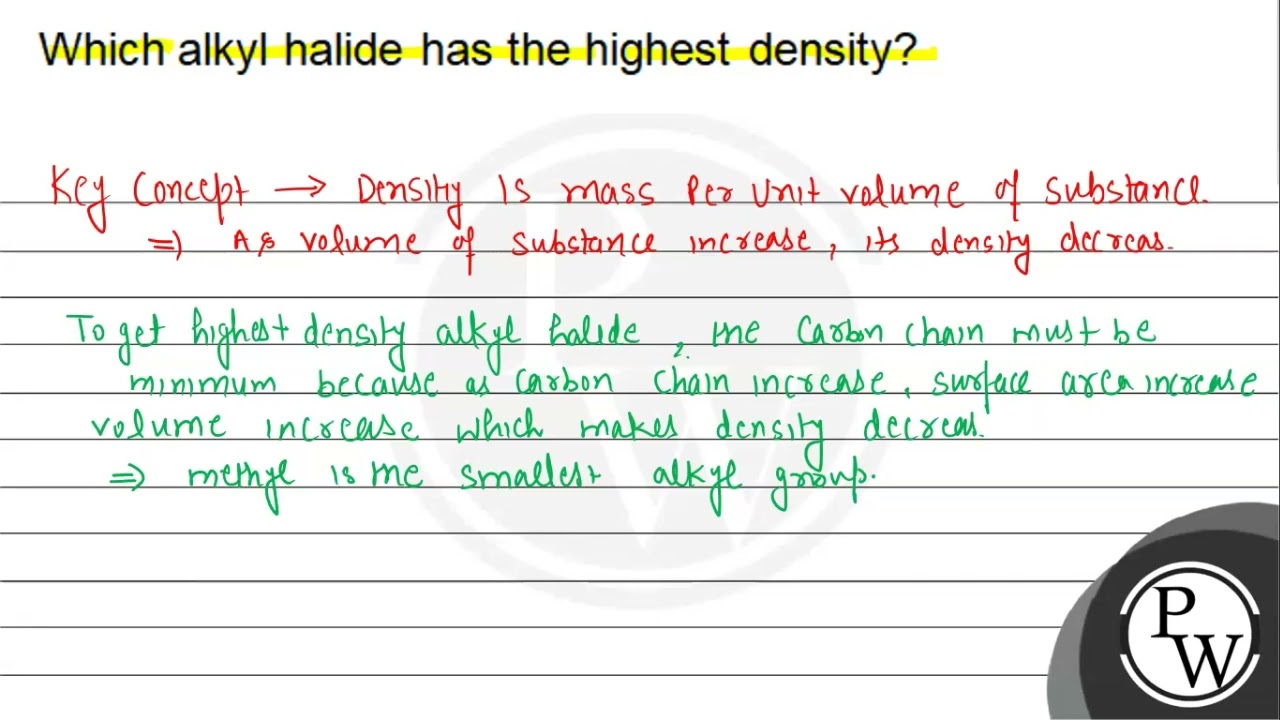 Which alkyl halide has the highest density?
Key Concept → Density is mass per unit volume of substance.
⇒ As volume of substance increase, its density decreas.
To get highest density alkyl halide, the carbon chain must be
minimum because as carbon chain increase, surface area increase
volume increase which makes density decreas.
⇒ methyl is the smallest alkyl group.
PW
PW